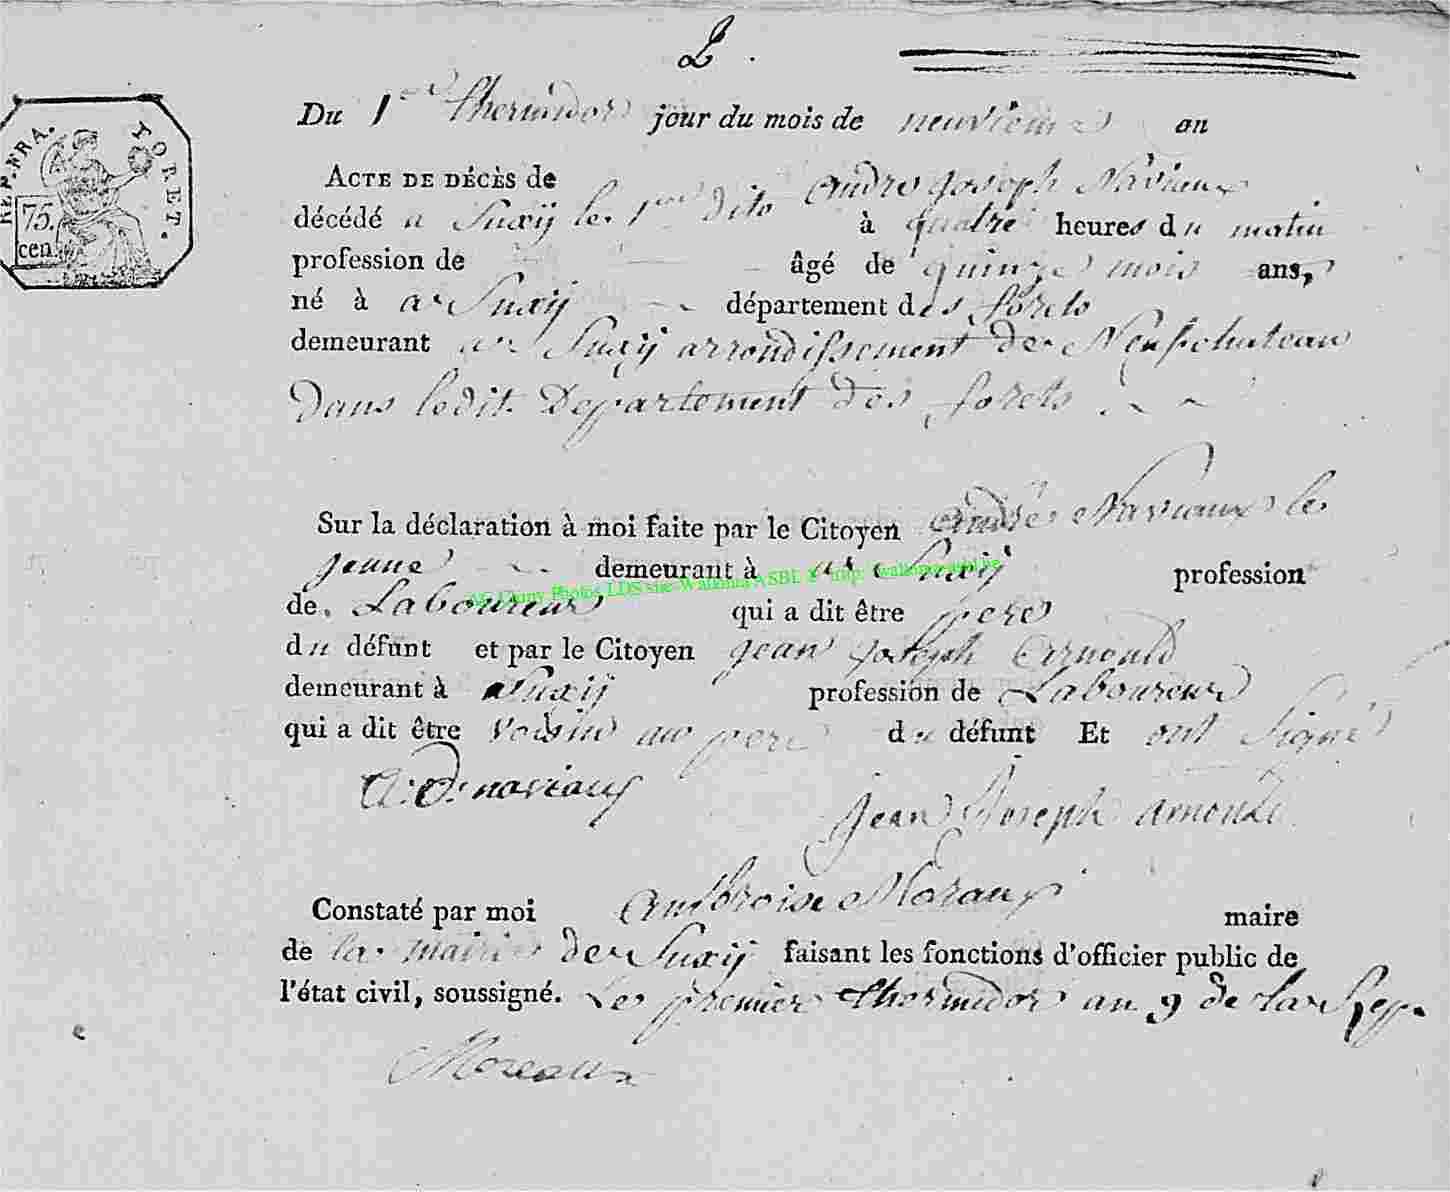 2.
REP. FRA. FORET.
75. cen.
Du 1er thermidor jour du mois de neuvieme an
ACTE DE DÉCÈS de andre joseph Naviaux
décédé a Suxÿ le 1er dito à quatre heures du matin
profession de âgé de quinze mois ans,
né à a Suxÿ département des forets
demeurant a Suxÿ arrondissement de Neufchateau
Dans ledit Departement des forets
Sur la déclaration à moi faite par le Citoyen andré Naviaux le
jeune demeurant à a Suxÿ profession
de Laboureur qui a dit être pere
du défunt et par le Citoyen jean joseph arnould
demeurant à Suxÿ profession de Laboureur
qui a dit être voisin au pere du défunt Et ont signé
A: D: naviaux
jean Joseph arnould
Constaté par moi ambroise Moraux maire
de la mairie de Suxÿ faisant les fonctions d'officier public de
l'état civil, soussigné. Le premier thermidor an 9 de la Rep.
Moreaux